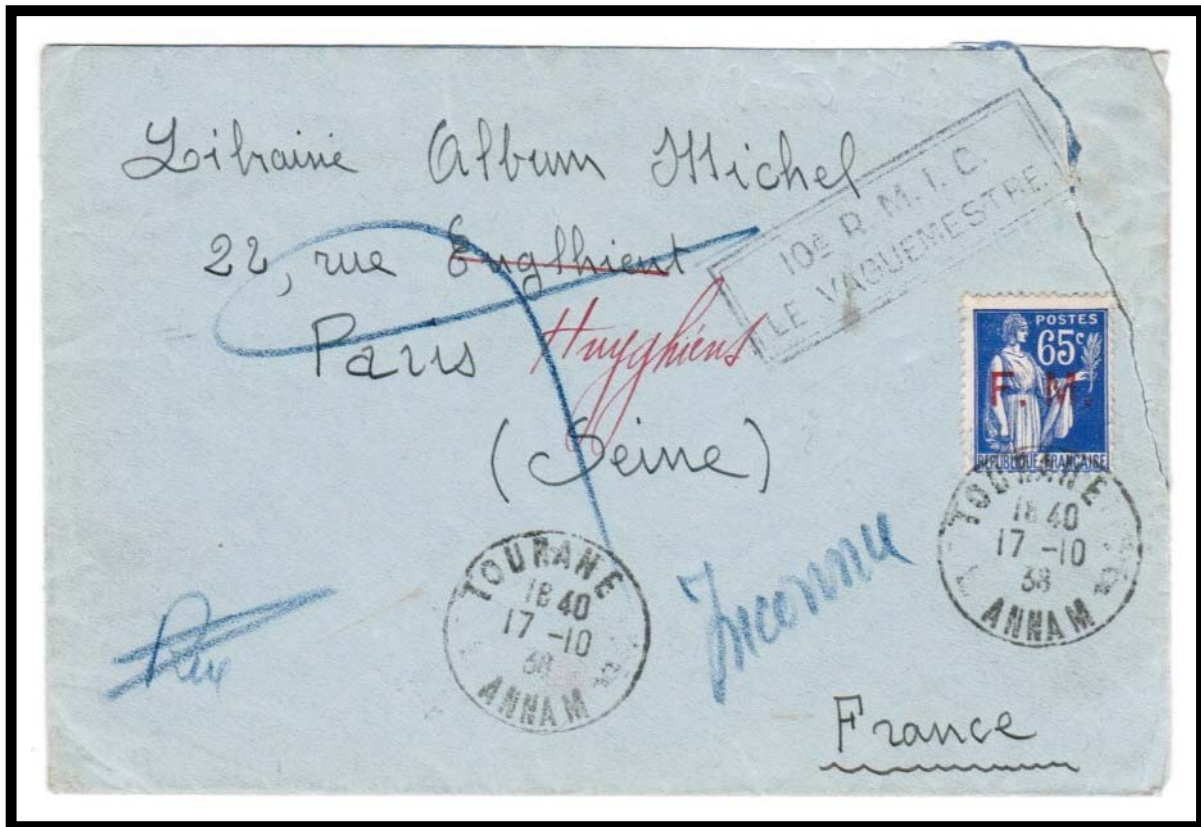 Librairie Album Michel
22, rue Englhient
Paris Huyghiens
(Seine)
France
10e R. M. I. C.
LE VAGUEMESTRE
POSTES
65c
F. M.
REPUBLIQUE FRANCAISE
TOURANE
18 40
17 -10
38
ANNAM
TOURANE
18 40
17 -10
38
ANNAM
Inconnu